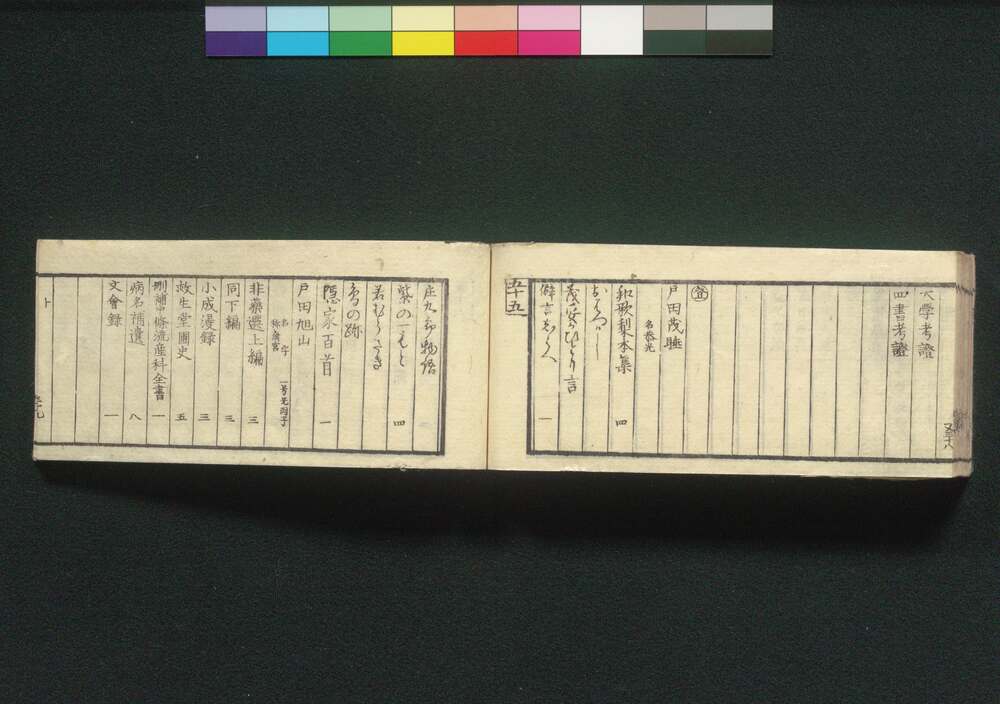 大学考證
四書考證
戸田茂睡
名恭光
和歌梨本集 四
僻言しらへ 一
五十五
庄九郎物語
紫の一もと 四
若むらさき
鳥の跡
隠家百首 一
戸田旭山
名 字
称齋宮
一号无悶子
非藥選上編 三
同下編 三
小成漫録 三
救生堂圃史 五
刪補中條流産科全書 一
病名補遺 八
文會録 一
ト